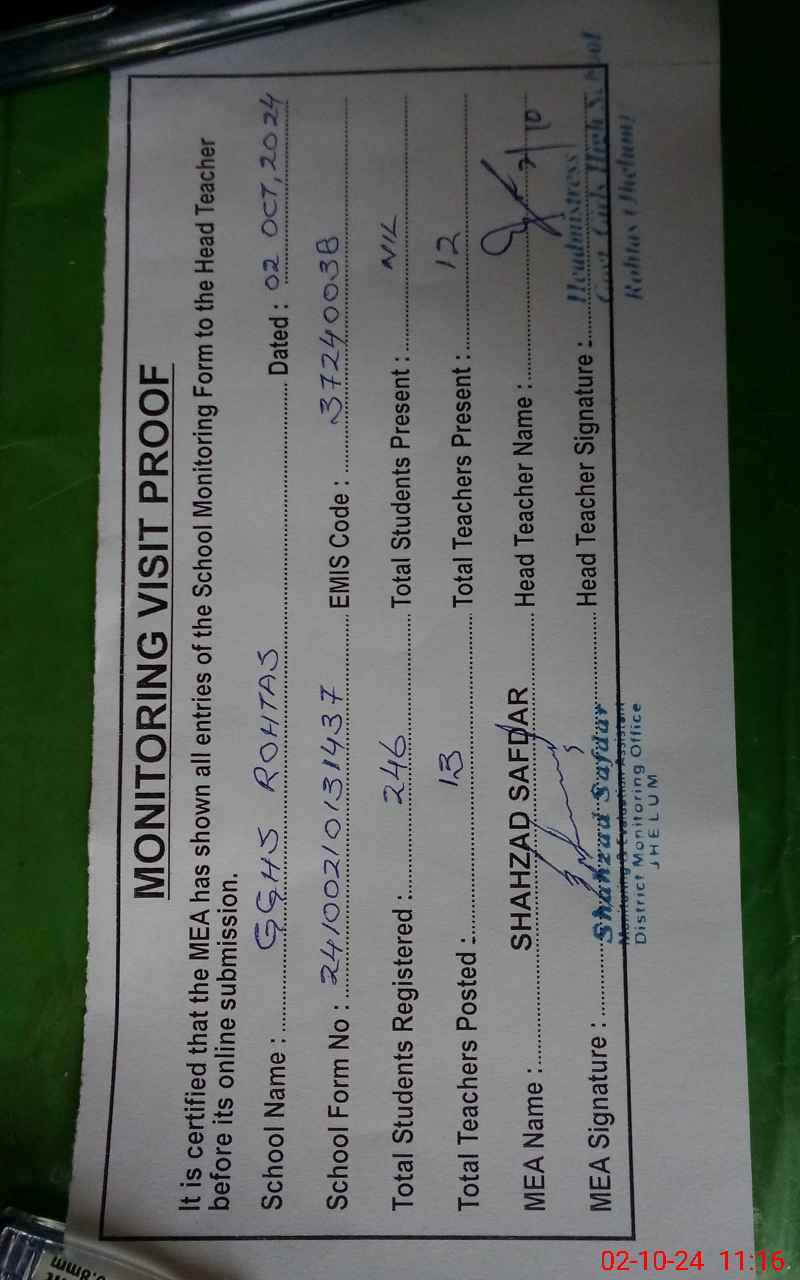 MONITORING VISIT PROOF
It is certified that the MEA has shown all entries of the School Monitoring Form to the Head Teacher
before its online submission.
School Name : GGHS ROHTAS Dated : 02 OCT, 2024
School Form No : 24100210131437 EMIS Code : 37240038
Total Students Registered : 246 Total Students Present : NIL
Total Teachers Posted : 13 Total Teachers Present : 12
MEA Name : SHAHZAD SAFDAR Head Teacher Name : 2/10
MEA Signature : Head Teacher Signature :
Shahzad Safdar
Monitoring & Evaluation Assistant
District Monitoring Office
JHELUM
Headmistress
Govt. Girls High School
Rohtas (Jhelum)
0.8mm
02-10-24 11:16